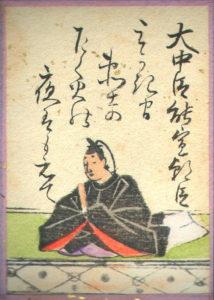 大中臣能宣朝臣
みかき守
衛士の
たく火の
夜はもえて